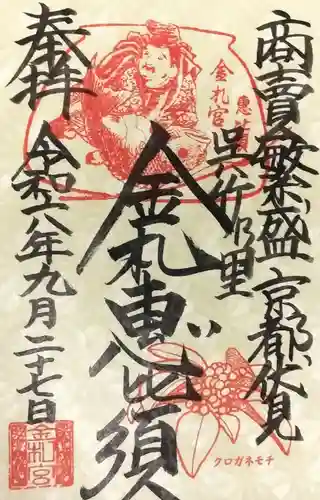 商賣繁盛 京都伏見
呉竹乃里
金札恵比須
奉拝
令和六年九月二十七日
恵比須
金札宮
金札宮
クロガネモチ